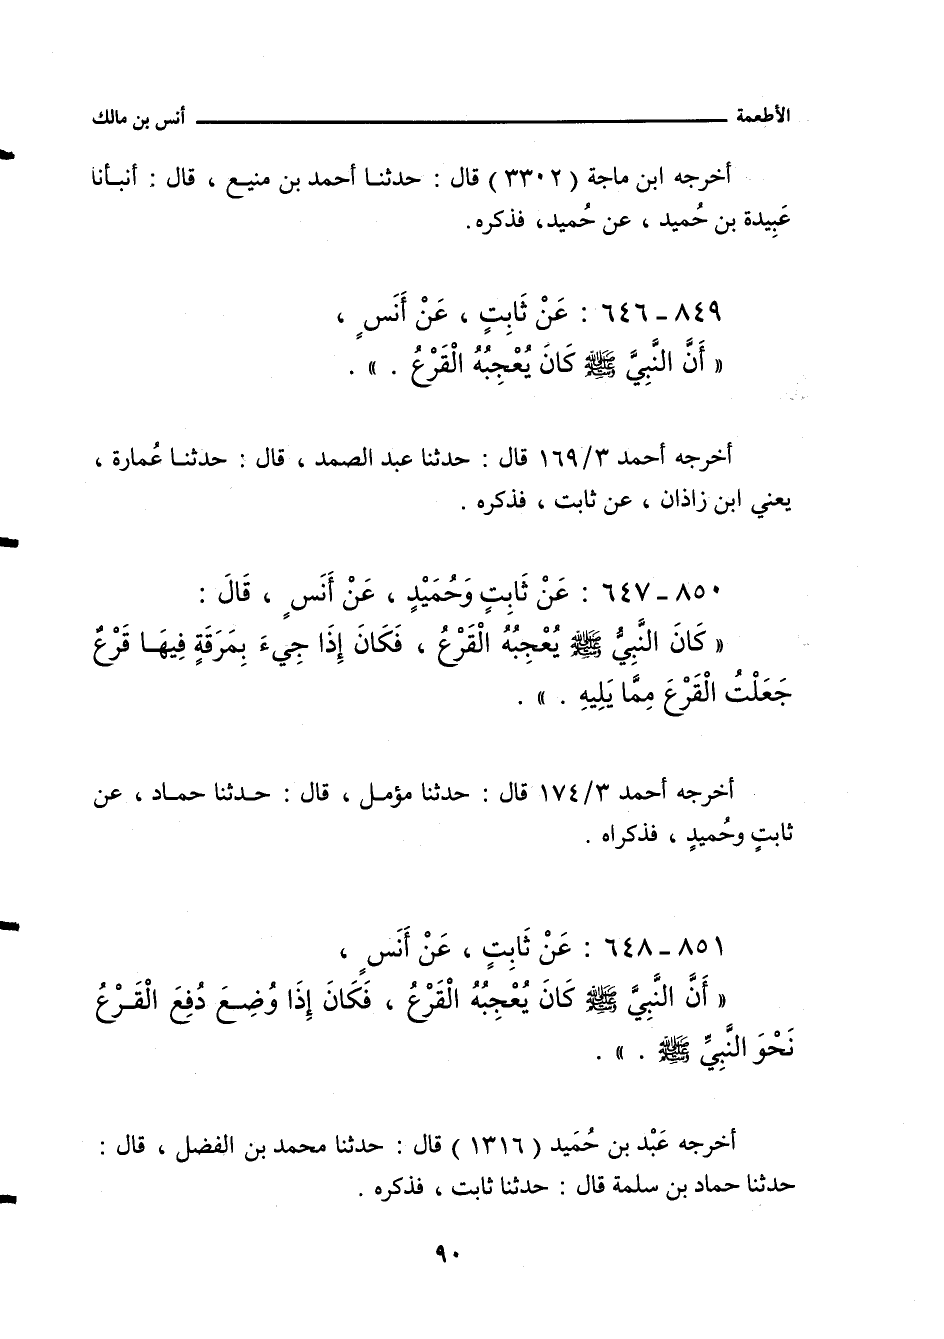 الأطعمة ـــــــــــــــــــــ أنس بن مالك
أخرجه ابن ماجة ( ٣٣٠٢ ) قال : حدثنا أحمد بن منيع ، قال : أنبأنا
عَبِيدة بن حُميد ، عن حُميد، فذكره.
٨٤٩ ـ ٦٤٦ : عَنْ ثَابِتٍ ، عَنْ أَنَسٍ ،
« أَنَّ النَّبِيَّ ﷺ كَانَ يُعْجِبُهُ الْقَرْعُ . » .
أخرجه أحمد ١٦٩/٣ قال : حدثنا عبد الصمد ، قال : حدثنا عُمارة ،
يعني ابن زاذان ، عن ثابت ، فذكره .
٨٥٠ ـ ٦٤٧ : عَنْ ثَابِتٍ وَحُمَيْدٍ ، عَنْ أَنَسٍ ، قَالَ :
« كَانَ النَّبِيُّ ﷺ يُعْجِبُهُ الْقَرْعُ ، فَكَانَ إِذَا جِيءَ بِمَرَقَةٍ فِيهَا قَرْعٌ
جَعَلْتُ الْقَرْعَ مِمَّا يَلِيهِ . » .
أخرجه أحمد ١٧٤/٣ قال : حدثنا مؤمل ، قال : حدثنا حماد ، عن
ثابتٍ وحُميدٍ ، فذكراه .
٨٥١ ـ ٦٤٨ : عَنْ ثَابِتٍ ، عَنْ أَنَسٍ ،
« أَنَّ النَّبِيَّ ﷺ كَانَ يُعْجِبُهُ الْقَرْعُ ، فَكَانَ إِذَا وُضِعَ دُفِعَ الْقَرْعُ
نَحْوَ النَّبِيِّ ﷺ . » .
أخرجه عَبْد بن حُمَيد ( ١٣١٦ ) قال : حدثنا محمد بن الفضل ، قال :
حدثنا حماد بن سلمة قال : حدثنا ثابت ، فذكره .
٩٠